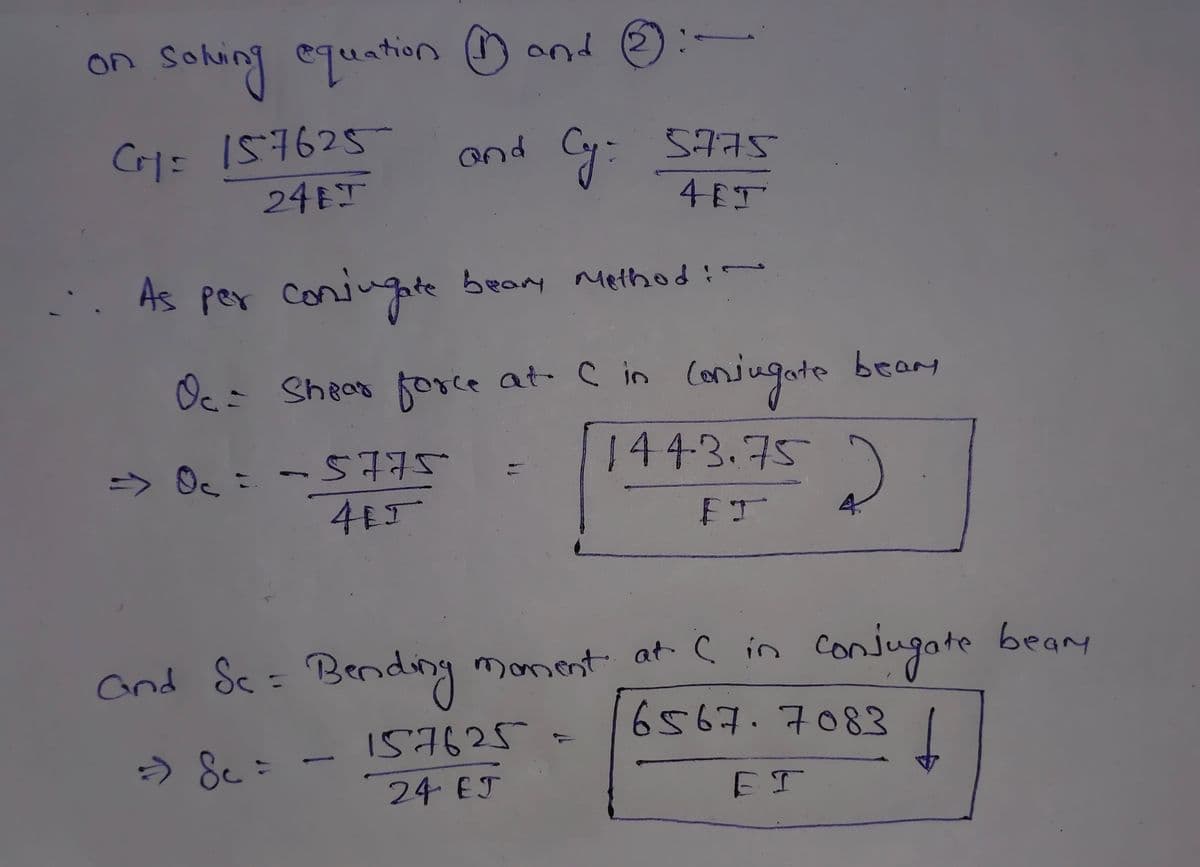 on solving equation ① and ② :—
CM = 157625 / 24EI and Cy = 5775 / 4EI
∴ As per conjugate beam Method :—
θc = Shear force at C in Conjugate beam
⇒ θc = - 5775 / 4EI = 1443.75 / EI ⤵
and δc = Bending moment at C in Conjugate beam
⇒ δc = - 157625 / 24 EI = 6567.7083 / EI ↓